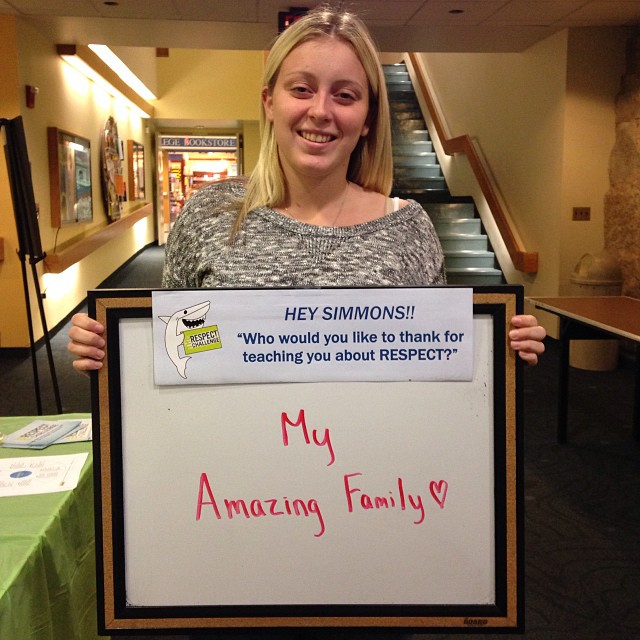 EGE BOOKSTORE
HEY SIMMONS!!
RESPECT
CHALLENGE
"Who would you like to thank for
teaching you about RESPECT?"
My
Amazing Family♡